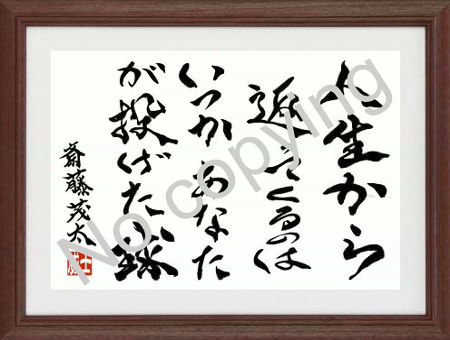 人生から
返ってくるのは
いつかあなた
が投げた球
斎藤茂太
No copying